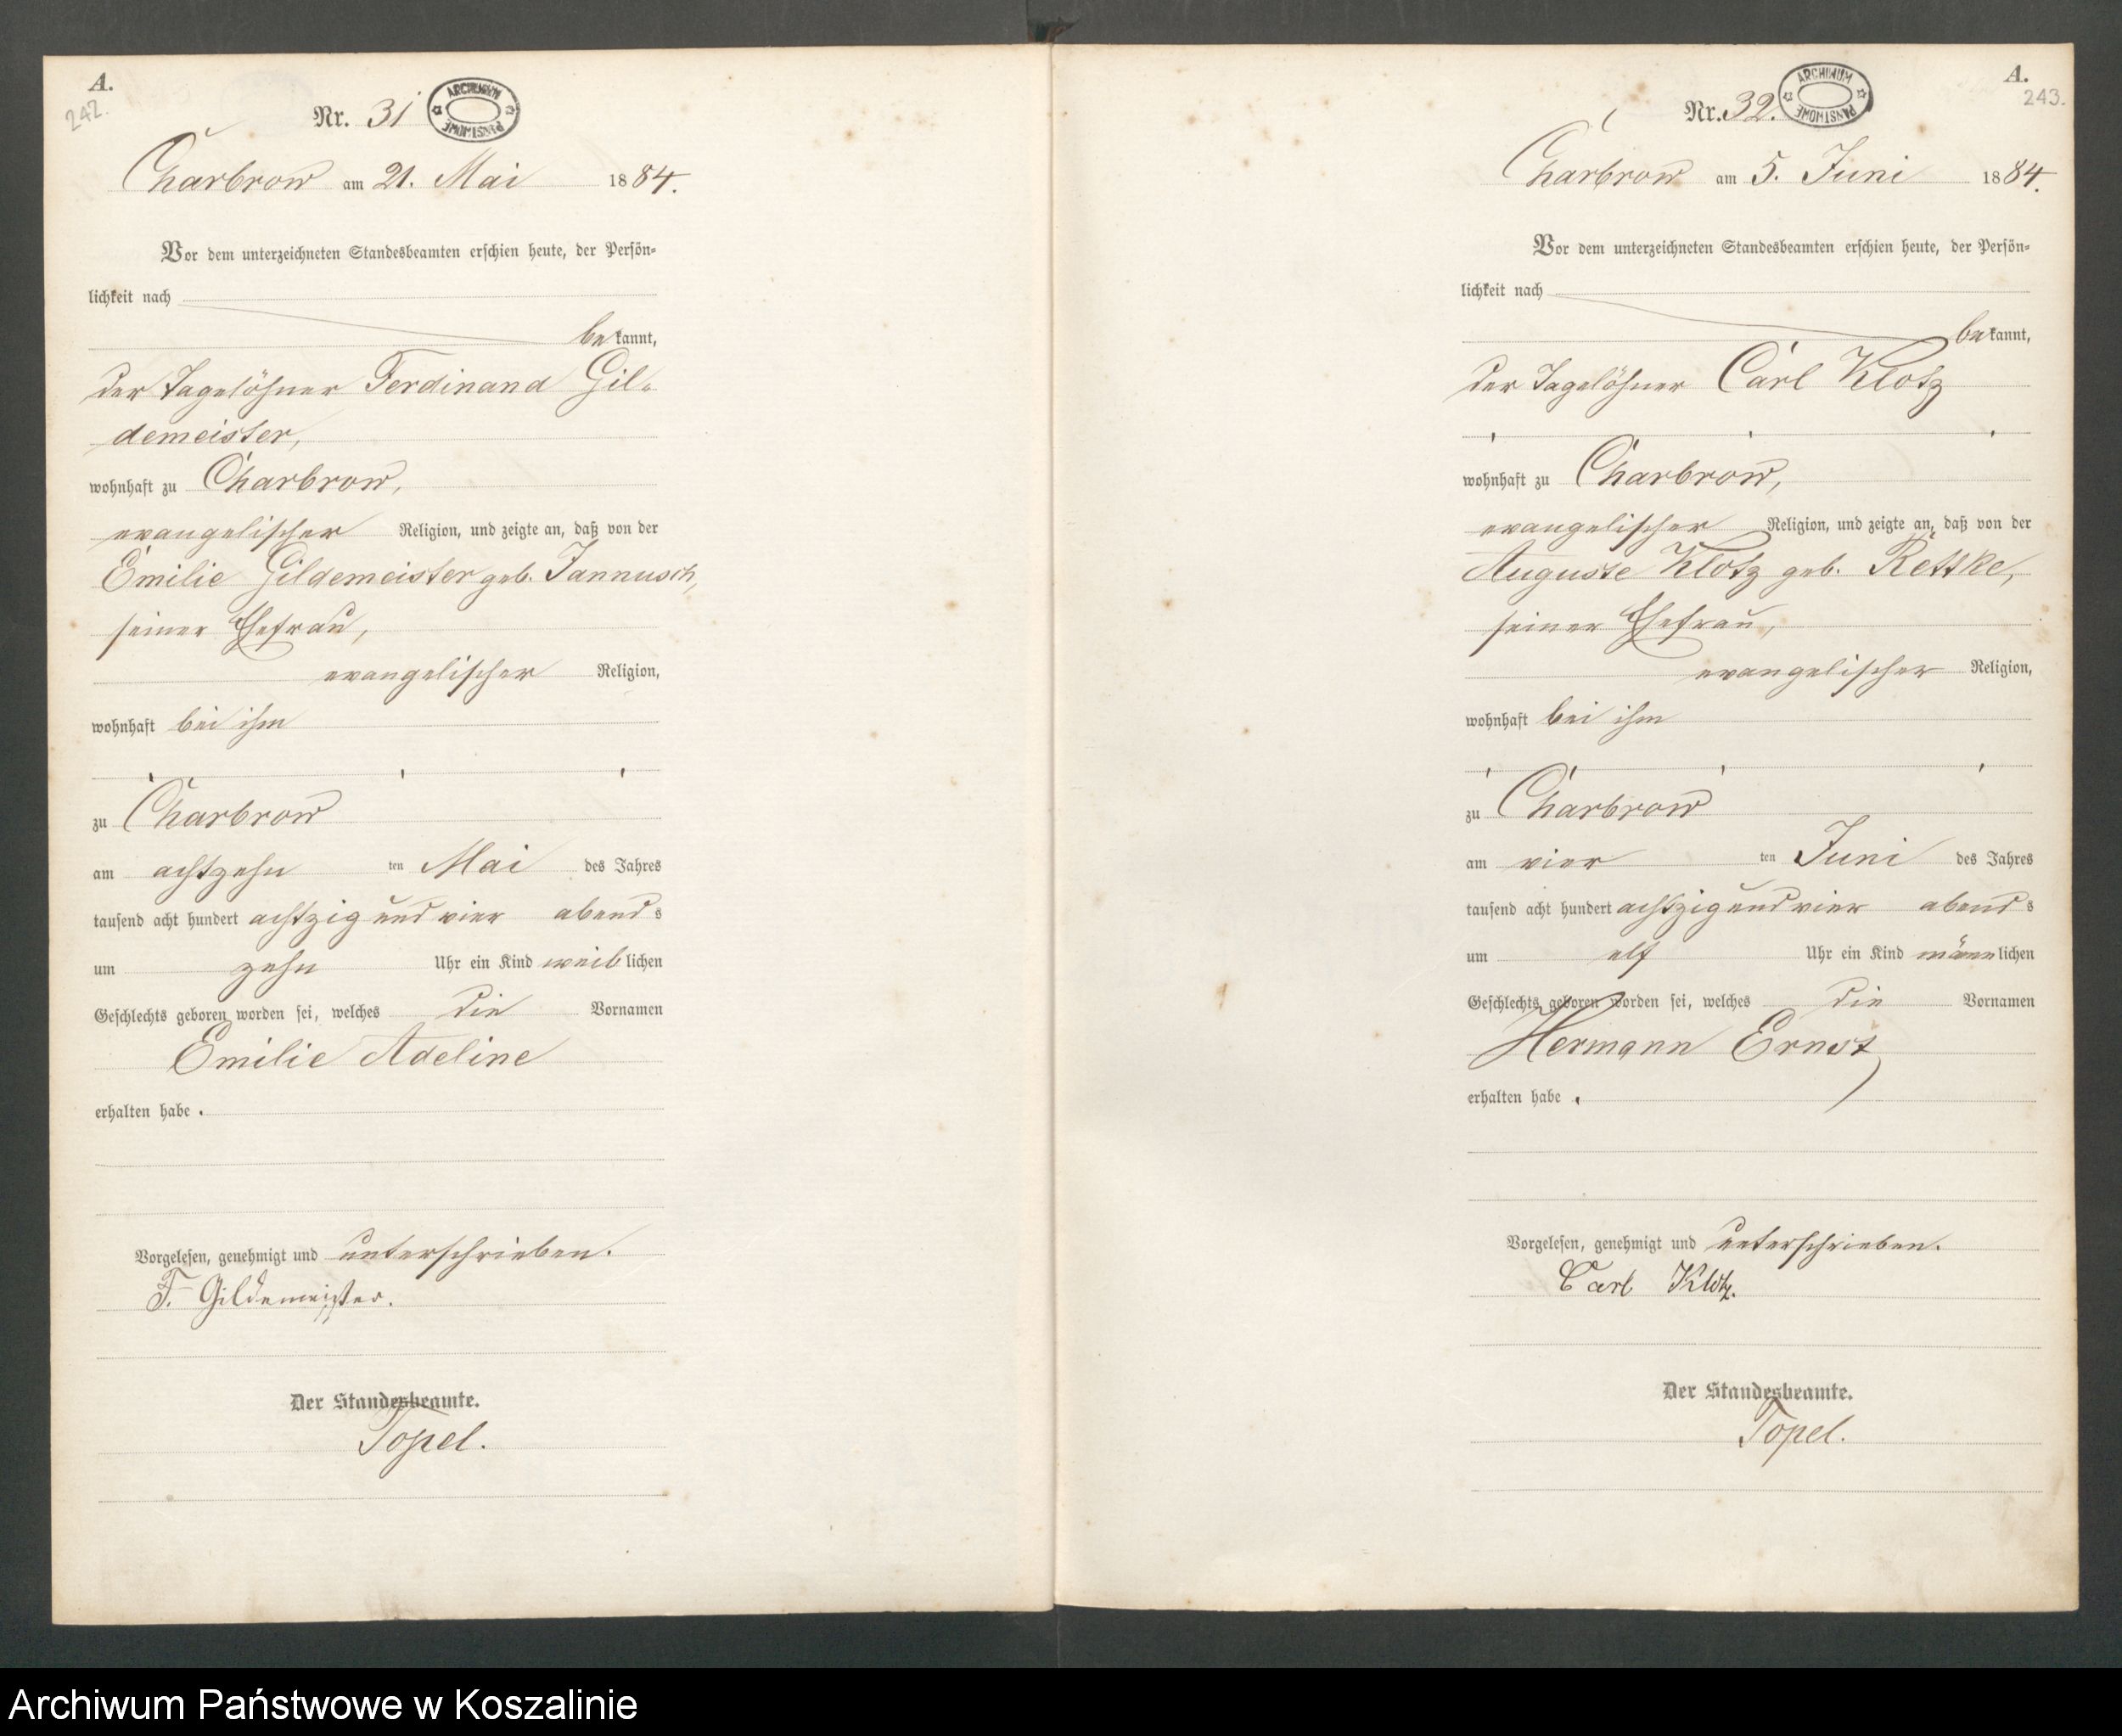 A.
242.
Nr. 31
ARCHIWUM PAŃSTWOWE
Charbrow am 21. Mai 1884.
Vor dem unterzeichneten Standesbeamten erschien heute, der Persön-
lichkeit nach
bekannt,
der Tagelöhner Ferdinand Gil-
demeister,
wohnhaft zu Charbrow,
evangelischer Religion, und zeigte an, daß von der
Emilie Gildemeister geb. Jannusch,
seiner Ehefrau,
evangelischer Religion,
wohnhaft bei ihm
zu Charbrow
am achtzehn ten Mai des Jahres
tausend acht hundert achtzig und vier abends
um zehn Uhr ein Kind weiblichen
Geschlechts geboren worden sei, welches die Vornamen
Emilie Adeline
erhalten habe.
Vorgelesen, genehmigt und unterschrieben.
F. Gildemeister.
Der Standesbeamte.
Topel.
A.
243.
Nr. 32.
ARCHIWUM PAŃSTWOWE
Charbrow am 5. Juni 1884.
Vor dem unterzeichneten Standesbeamten erschien heute, der Persön-
lichkeit nach
bekannt,
der Tagelöhner Carl Klotz
wohnhaft zu Charbrow,
evangelischer Religion, und zeigte an, daß von der
Auguste Klotz geb. Rettke,
seiner Ehefrau,
evangelischer Religion,
wohnhaft bei ihm
zu Charbrow
am vier ten Juni des Jahres
tausend acht hundert achtzig und vier abends
um elf Uhr ein Kind männlichen
Geschlechts geboren worden sei, welches die Vornamen
Hermann Ernst
erhalten habe.
Vorgelesen, genehmigt und unterschrieben.
Carl Klotz.
Der Standesbeamte.
Topel.
Archiwum Państwowe w Koszalinie